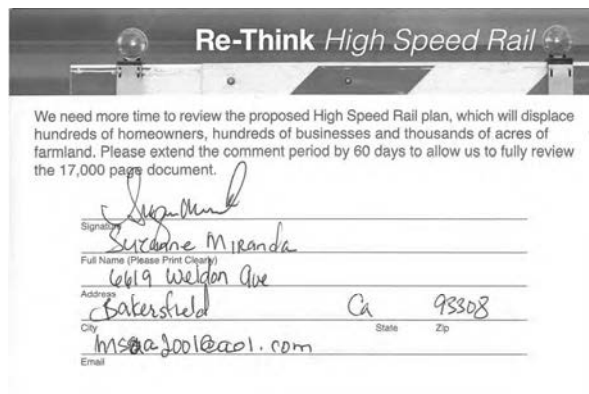 Re-Think High Speed Rail
We need more time to review the proposed High Speed Rail plan, which will displace
hundreds of homeowners, hundreds of businesses and thousands of acres of
farmland. Please extend the comment period by 60 days to allow us to fully review
the 17,000 page document.
Signature
Suzanne Miranda
Full Name (Please Print Clearly)
6619 Weldon Ave
Address
Bakersfield Ca 93308
City State Zip
Email